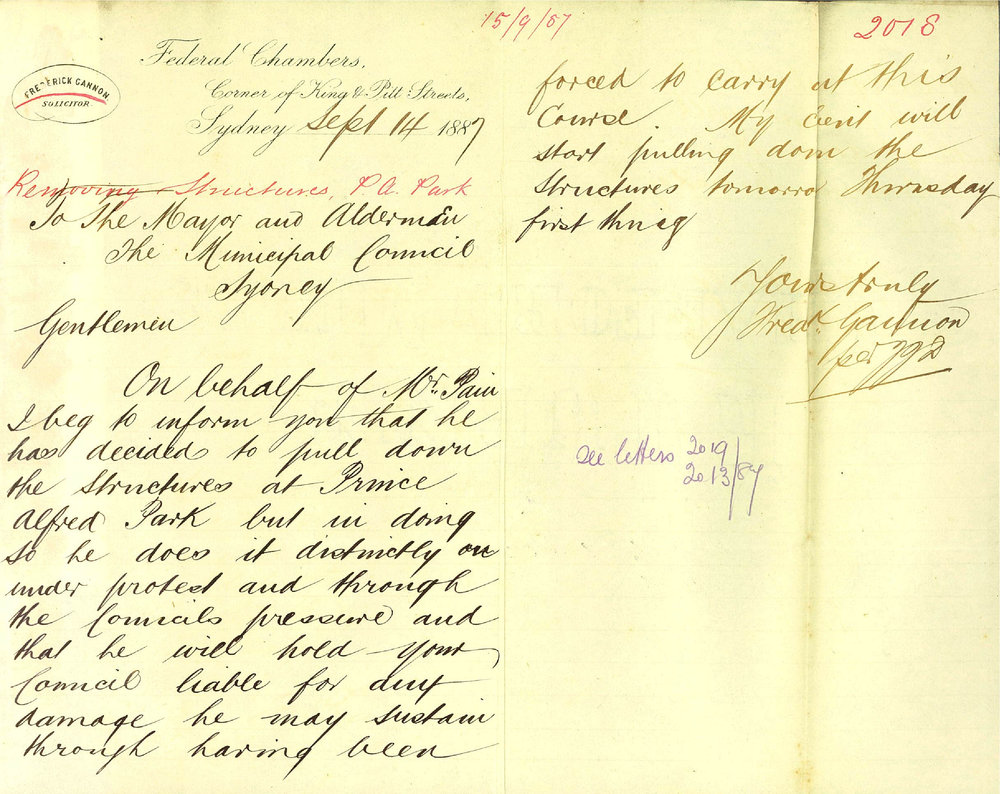 15/9/87
2018
FREDERICK GANNON
SOLICITOR
Federal Chambers,
Corner of King & Pitt Streets,
Sydney Sept 14 1887
Removing Structures, P.A. Park
To The Mayor and Alderman
The Municipal Council
Sydney
Gentlemen
On behalf of Mr. Pain
I beg to inform you that he
has decided to pull down
the structures at Prince
Alfred Park but in doing
so he does it distinctly
under protest and through
the Councils pressure and
that he will hold your
Council liable for any
damage he may sustain
through having been
forced to carry at this
Course. My Client will
start pulling down the
structures tomorrow Thursday
first thing
Yours truly
Fredk. Gannon
per
see letters 2019
2013/87